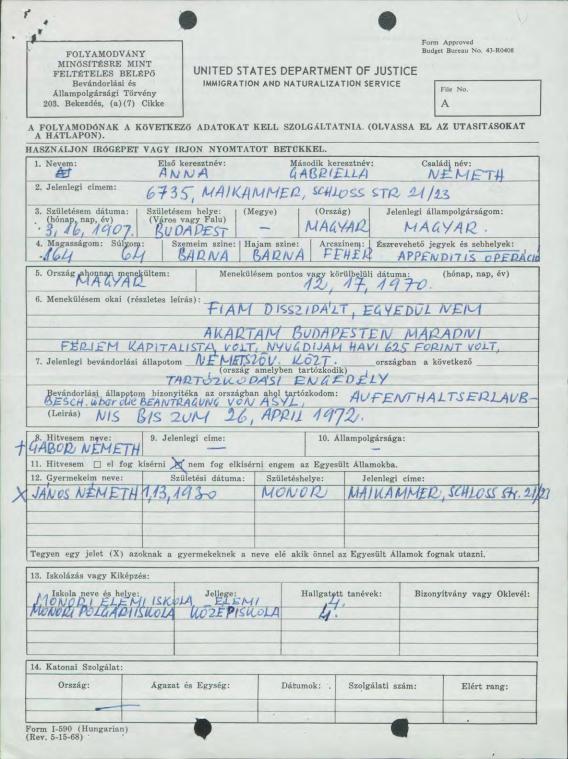 Form Approved
Budget Bureau No. 43-R0408
FOLYAMODVÁNY
MINŐSÍTÉSRE MINT
FELTÉTELES BELÉPŐ
Bevándorlási és
Állampolgársági Törvény
203. Bekezdés, (a)(7) Cikke
UNITED STATES DEPARTMENT OF JUSTICE
IMMIGRATION AND NATURALIZATION SERVICE
File No.
A
A FOLYAMODÓNAK A KÖVETKEZŐ ADATOKAT KELL SZOLGÁLTATNIA. (OLVASSA EL AZ UTASITÁSOKAT
A HÁTLAPON).
HASZNÁLJON IRÓGÉPET VAGY IRJON NYOMTATOT BETŰKKEL.
1. Nevem: Első keresztnév: Második keresztnév: Családi név:
ANNA GABRIELLA NÉMETH
2. Jelenlegi címem: 6735, MAIKAMMER, SCHLOSS STR 21/23
3. Születésem dátuma: Születésem helye: (Megye) (Ország) Jelenlegi állampolgárságom:
(hónap, nap, év) (Város vagy Falu)
3, 16, 1907. BUDAPEST — MAGYAR MAGYAR.
4. Magasságom: Súlyom: Szemeim szine: Hajam szine: Arcszínem: Észrevehető jegyek és sebhelyek:
164 64 BARNA BARNA FEHÉR APPENDITIS OPERÁCIÓ
5. Ország ahonnan menekültem: Menekülésem pontos vagy körülbelüli dátuma: (hónap, nap, év)
MAGYAR 12, 17, 1970.
6. Menekülésem okai (részletes leírás):
FIAM DISSZIDÁLT, EGYEDÜL NEM
AKARTAM BUDAPESTEN MARADNI
FÉRJEM KAPITALISTA VOLT, NYUGDIJAM HAVI 625 FORINT VOLT,
7. Jelenlegi bevándorlási állapotom NÉMETSZÖV. KÖZT. országban a következő
(ország amelyben tartózkodik)
TARTÓZKODÁSI ENGEDÉLY
Bevándorlási állapotom bizonyitéka az országban ahol tartózkodom: AUFENTHALTSERLAUB-
BESCH. über die BEANTRAGUNG VON ASYL,
(Leírás) NIS BIS ZUM 26, APRIL 1972.
8. Hitvesem neve: 9. Jelenlegi címe: 10. Állampolgársága:
+ GÁBOR NÉMETH — —
11. Hitvesem □ el fog kisérni ☒ nem fog elkisérni engem az Egyesült Államokba.
12. Gyermekeim neve: Születési dátuma: Születéshelye: Jelenlegi címe:
X JÁNOS NÉMETH 1,13,1930 MONOR MAIKAMMER, SCHLOSS Str. 21/23
Tegyen egy jelet (X) azoknak a gyermekeknek a neve elé akik önnel az Egyesült Államok fognak utazni.
13. Iskolázás vagy Kiképzés:
Iskola neve és helye: Jellege: Hallgatott tanévek: Bizonyítvány vagy Oklevél:
MONORI ELEMI ISKOLA ELEMI 4.
MONORI POLGÁRI ISKOLA KÖZÉPISKOLA 4.
14. Katonai Szolgálat:
Ország: Ágazat és Egység: Dátumok: Szolgálati szám: Elért rang:
—
Form I-590 (Hungarian)
(Rev. 5-15-68)